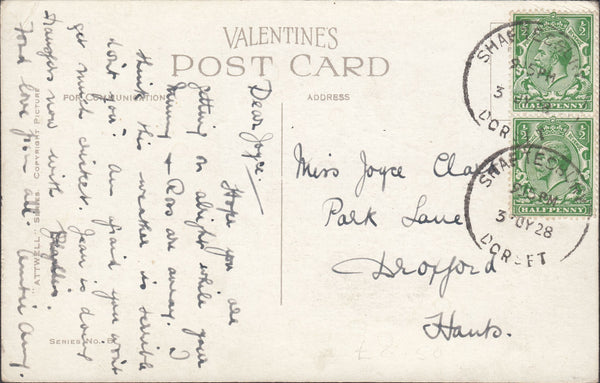 VALENTINES
POST CARD
FOR COMMUNICATION
ADDRESS
Dear Joyce.
Hope you are
getting on alright while your
Mummy & Ross are away. I
think this weather is terrible
don't you. Am afraid you won't
get much cricket. Jean is doing
now with Phyllis.
Fond love from all. Auntie Amy.
"ATTWELL" SERIES. COPYRIGHT PICTURE
SERIES No.
Miss Joyce
Park Lane
Droxford
Hants.
SHAFTESBURY
PM
3 JY 28
DORSET
SHAFTESBURY
PM
3 JY 28
DORSET
½ ½
HALFPENNY
½ ½
HALFPENNY